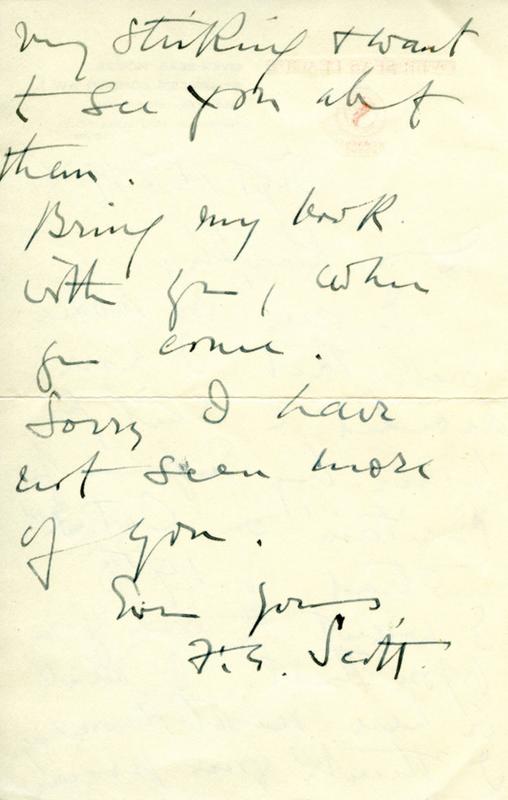 very striking & want
to see you about
them.
Bring my book
with you, when
you come.
Sorry I have
not seen more
of you.
Ever yours,
F.G. Scott.